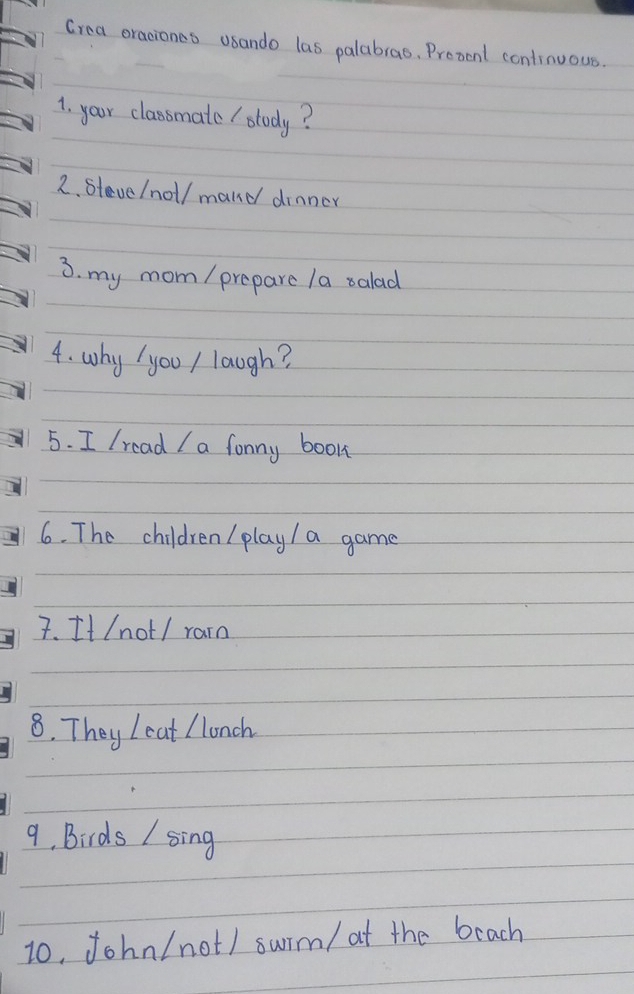 Crea oraciones usando las palabras. Present continuous.
1. your classmate / study?
2. Steve/not/make/ dinner
3. my mom / prepare /a salad
4. why /you / laugh?
5. I /read / a fonny book
6. The children/play/a game
7. It /not/ rain
8. They /eat /lunch
9. Birds / sing
10. John/not/ swim/ at the beach